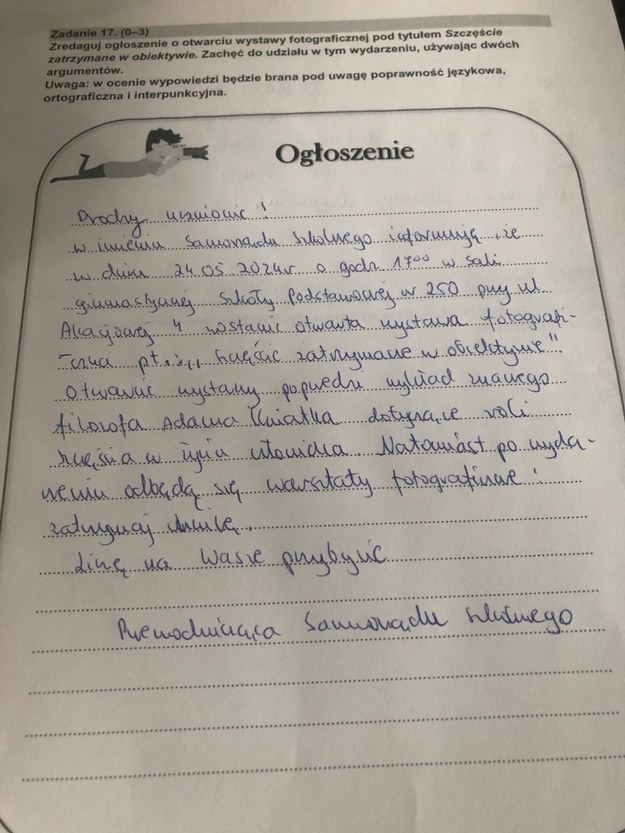 Zadanie 17. (0–3)
Zredaguj ogłoszenie o otwarciu wystawy fotograficznej pod tytułem Szczęście
zatrzymane w obiektywie. Zachęć do udziału w tym wydarzeniu, używając dwóch
argumentów.
Uwaga: w ocenie wypowiedzi będzie brana pod uwagę poprawność językowa,
ortograficzna i interpunkcyjna.
Ogłoszenie
Drodzy uczniowie!
w imieniu Samorządu szkolnego informuję, że
w dniu 24.05.2024r o godz. 17⁰⁰ w sali
gimnastycznej Szkoły Podstawowej nr 250 przy ul.
Akacjowej 4 zostanie otwarta wystawa fotografi-
czna pt.: „Szczęście zatrzymane w obiektywie"
Otwarcie wystawy poprzedzi wykład znanego
filozofa Adama Kwiatka dotyczące roli
szczęścia w życiu człowieka. Natomiast po wyda-
rzeniu odbędą się warsztaty fotograficzne:
zatrzymaj chwilę.
Liczę na Wasze przybycie
Przewodnicząca Samorządu szkolnego